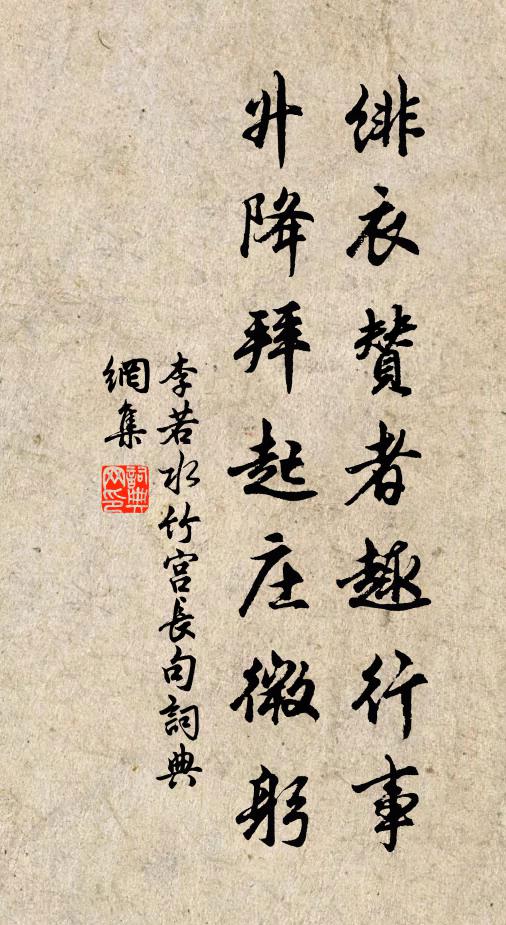 緋衣贊者趣行事
升降拜起庄微躬
李若水竹宫長句詞典
網集
詞典网印